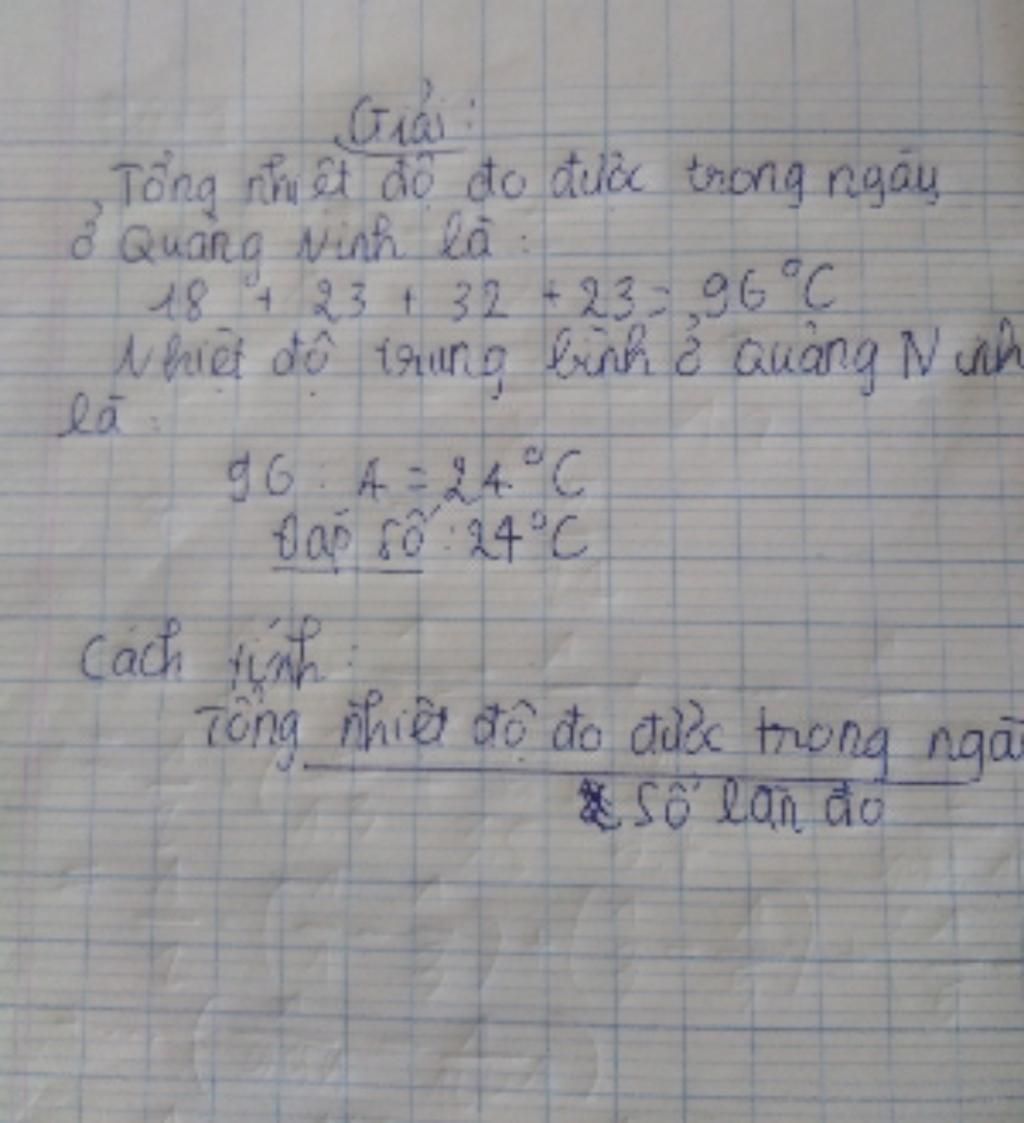 Giải:
Tổng nhiệt độ đo được trong ngày
ở Quảng Ninh là :
18 + 23 + 32 + 23 = 96°C
Nhiệt độ trung bình ở Quảng Ninh
là :
96 : 4 = 24°C
Đáp số : 24°C
Cách tính :
Tổng nhiệt độ đo được trong ngà
Số lần đo